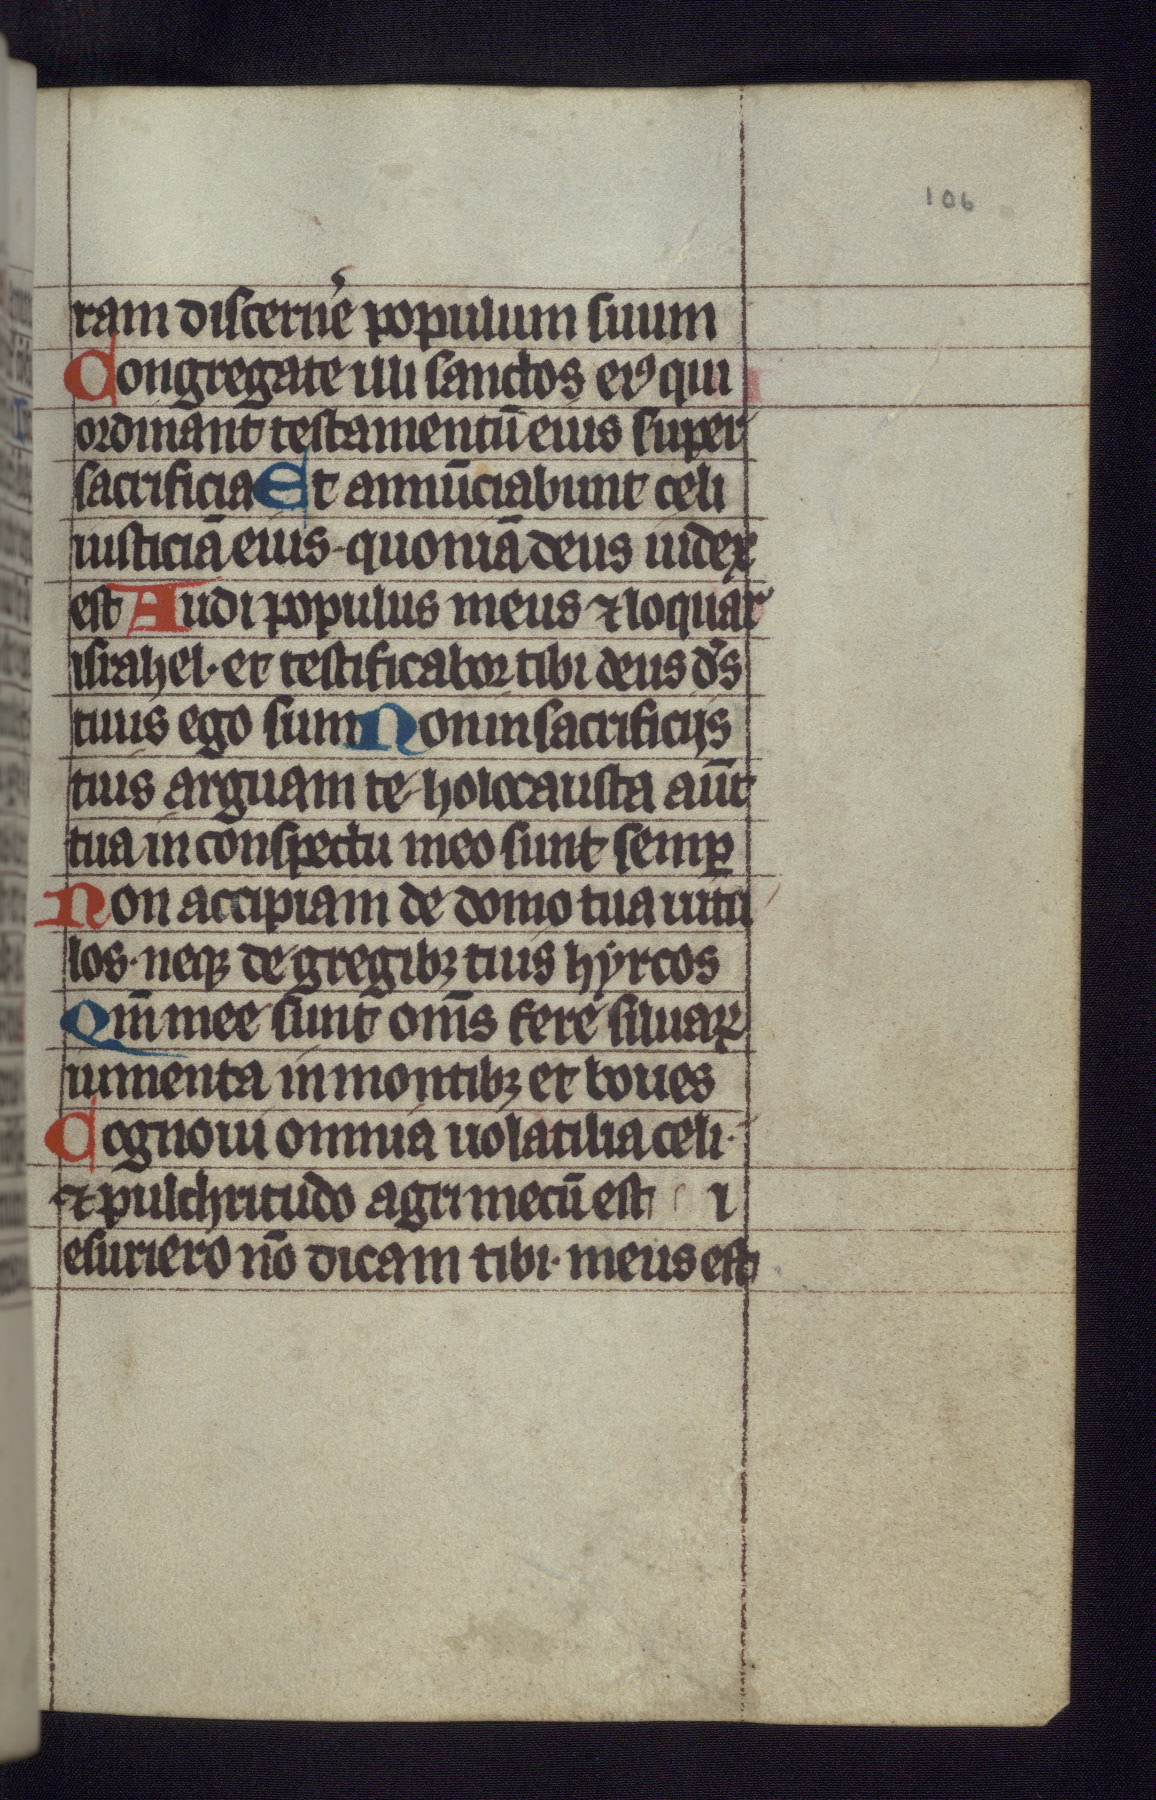 106
ram discern̄e populum suum
Congregate illi sanctos eiꝰ qui
ordinant testamentū eius super
sacrificia Et annūciabunt celi
iusticiā eius · quoniā deus iudex
est Audi populus meus ⁊ loquar
israhel · et testificabor tibi deus ds̄
tuus ego sum Non in sacrificijs
tuis arguam te · holocausta aūt
tua in conspectu meo sunt semꝑ
Non accipiam de domo tua uitu
los · neqꝫ de gregibꝫ tuis hyrcos
Qm̄ mee sunt om̄s fere siluaꝝ
iumenta in montibꝫ et boues
Cognoui omnia uolatilia celi ·
⁊ pulchritudo agri mecū est i
esuriero nō dicam tibi · meus est